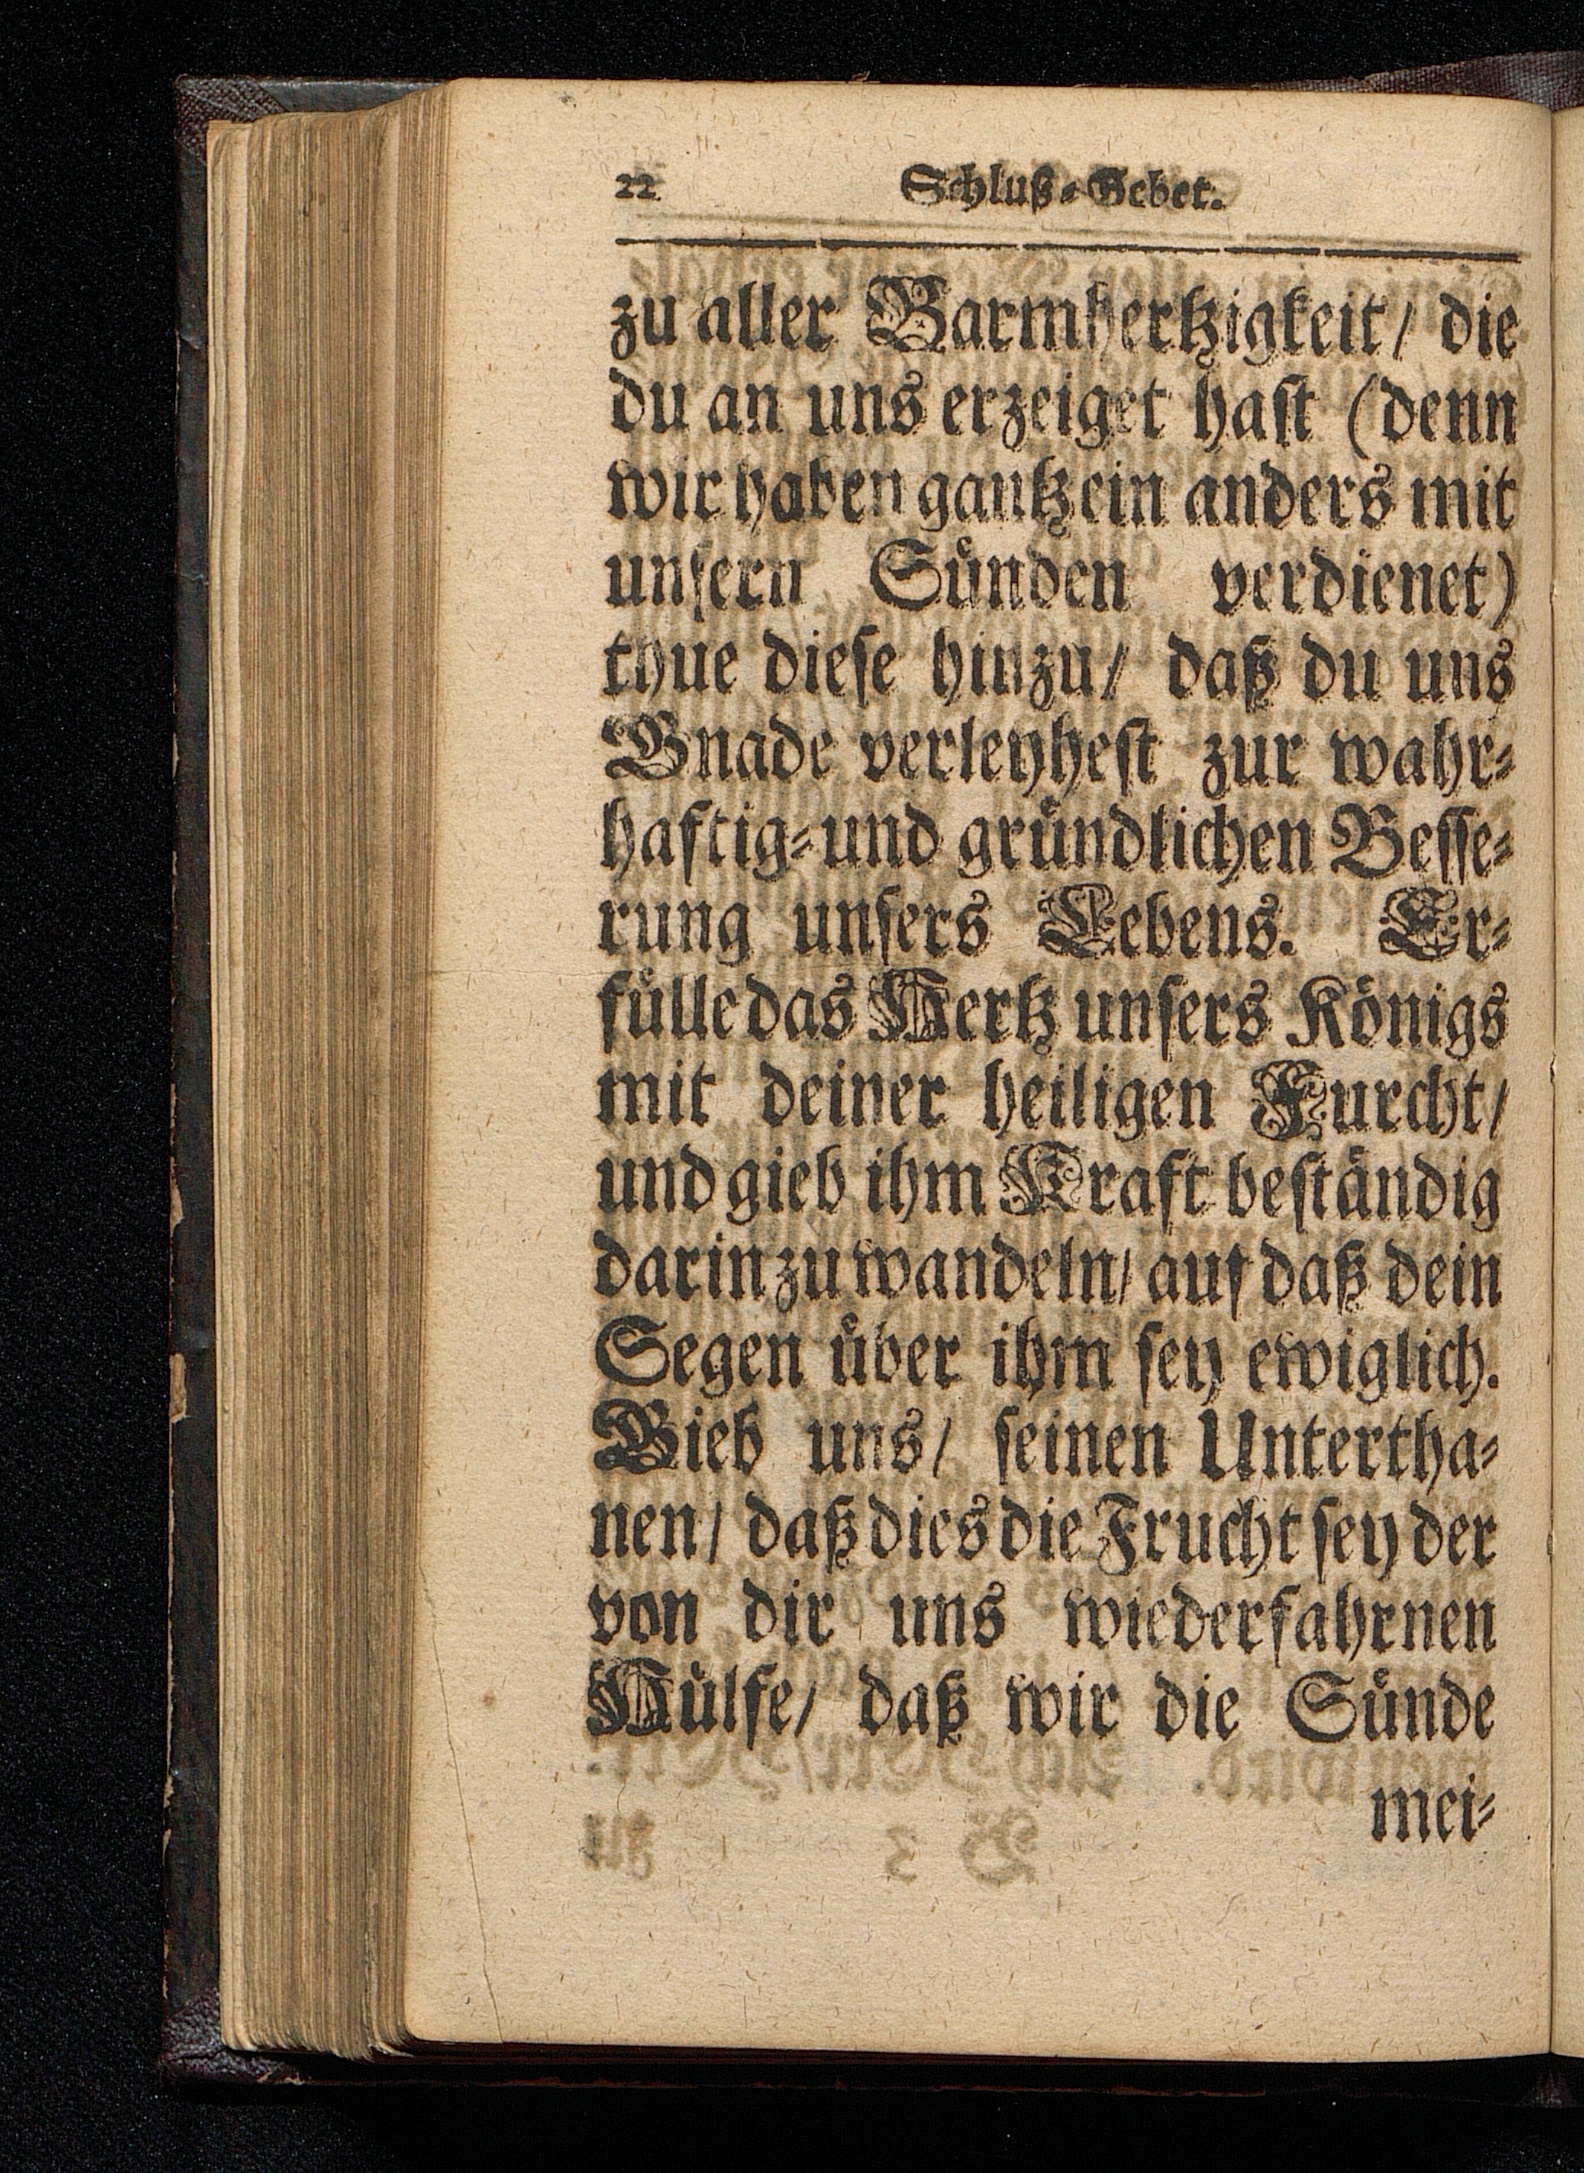 22 Schluß-Gebet.
zu aller Barmhertzigkeit/ die
du an uns erzeiget hast (denn
wir haben gantz ein anders mit
unsern Sünden verdienet)
thue diese hinzu/ daß du uns
Gnade verleyhest zur wahr-
haftig- und gründlichen Besse-
rung unsers Lebens. Er-
fülle das Hertz unsers Königs
mit deiner heiligen Furcht/
und gieb ihm Kraft beständig
darin zu wandeln/ auf daß dein
Segen über ihm sey ewiglich.
Gieb uns/ seinen Untertha-
nen/ daß dies die Frucht sey der
von dir uns wiederfahrnen
Hülfe/ daß wir die Sünde
mei-